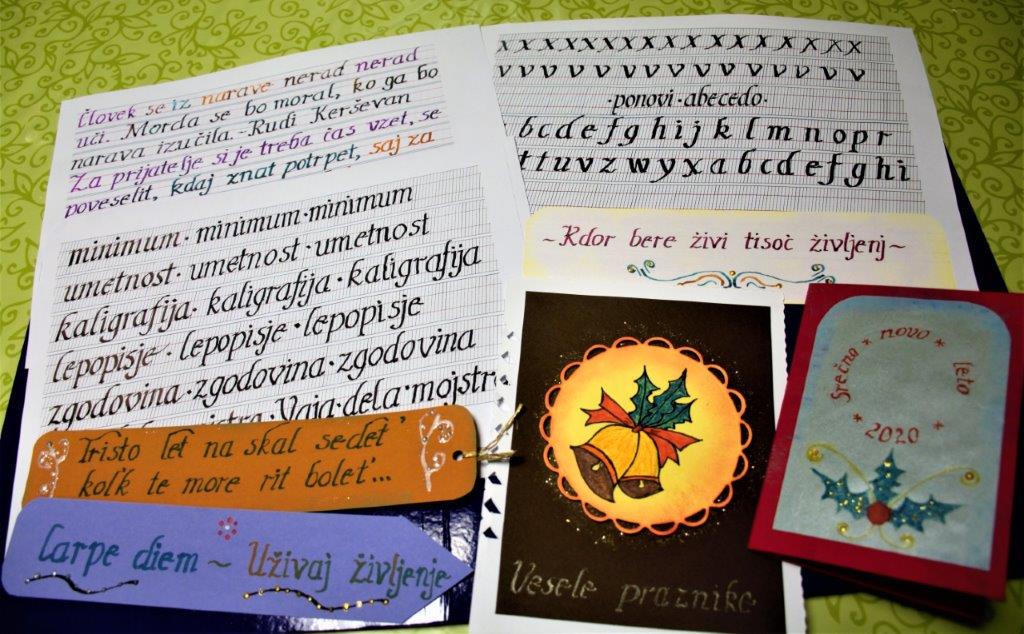 Človek se iz narave nerad nerad
uči. Morda se bo moral, ko ga bo
narava izučila. - Rudi Kerševan
Za prijatelje si je treba čas vzet, se
poveselit, kdaj znat potrpet, saj za
minimum · minimum · minimum
umetnost · umetnost · umetnost
kaligrafija · kaligrafija · kaligrafija
lepopisje · lepopisje · lepopisje
zgodovina · zgodovina · zgodovina
Vaja · dela · mojstr
x x x x x x x x x x x x x x x x x x
v v v v v v v v v v v v v v v v v
· ponovi · abecedo ·
b c d e f g h i j k l m n o p r
t t u v z w y x a b c d e f g h i
~ Kdor bere živi tisoč življenj ~
Tristo let na skal sedet'
kol'k te more rit bolet'...
Carpe diem ~ Uživaj življenje
Vesele praznike
Srečno * novo * leto
* 2020 *